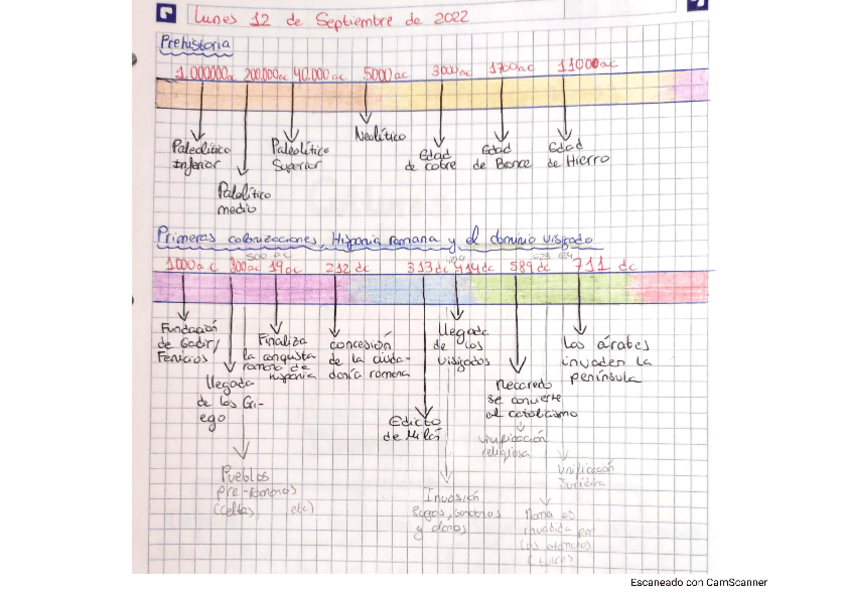 Lunes 12 de Septiembre de 2022
Prehistoria
1.000000a 200.000ac 40.000ac 5000ac 3000ac 1700ac 11000ac
Paleolítico
Inferior
Palolítico
medio
Paleolítico
Superior
Neolítico
Edad
de cobre
Edad
de Bronce
Edad
de Hierro
Primeras colonizaciones, Hispania romana y el dominio visigodo
500 ac
1000a c 300ac 19ac 212 dc 313dc 414dc 589dc 711 dc
Fundación
de Gadir/
Fenicios
llegada
de los Gri-
ego
Pueblos
pre-romanos
(celtas, etc)
Finaliza
la conquista
romana de
hispania
concesión
de la ciuda-
danía romana
Edicto
de Milán
llegada
de los
visigodos
Invasión
y alanos
Recaredo
se convierte
al catolicismo
unificación
religiosa
Unificación
Jurídica
Roma es
Los árabes
invaden la
península
Escaneado con CamScanner